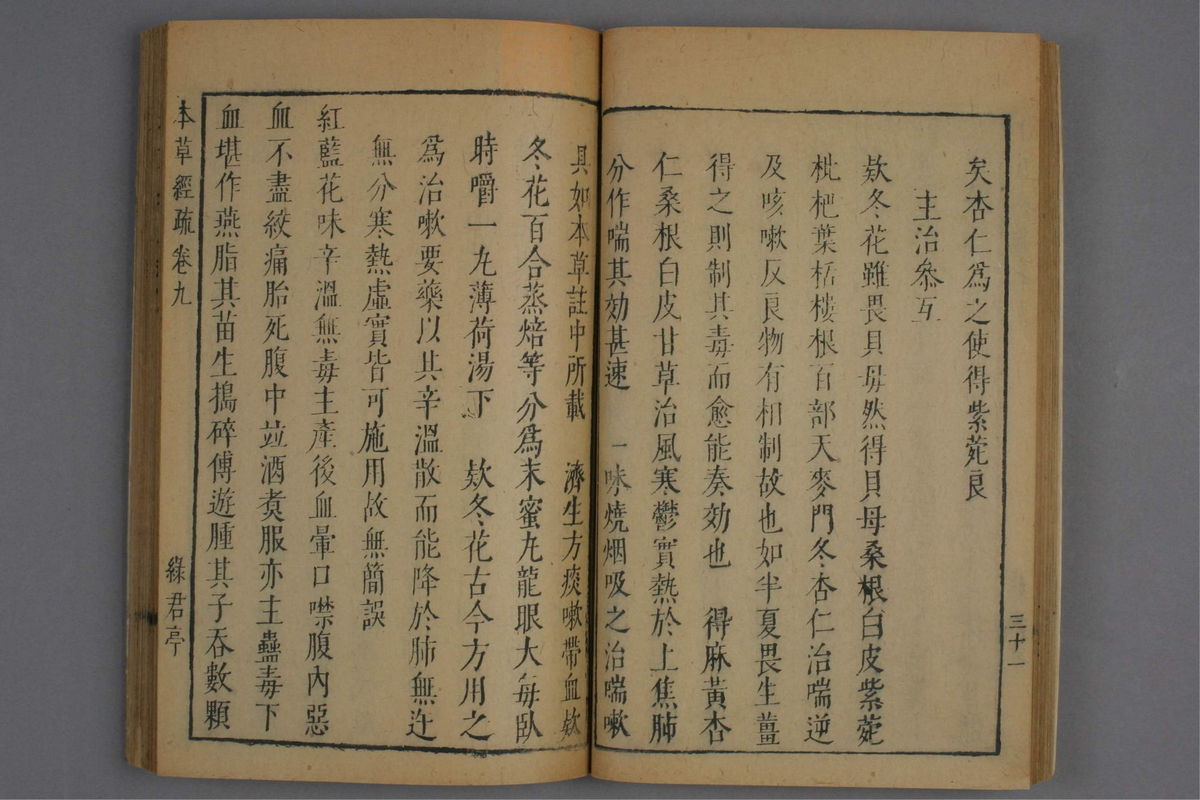 矣杏仁爲之使得紫菀良
主治叅互
欵冬花雖畏貝母然得貝母桑根白皮紫菀
枇杷葉栝樓根百部天麥門冬杏仁治喘逆
及咳嗽反良物有相制故也如半夏畏生薑
得之則制其毒而愈能奏効也 得麻黃杏
仁桑根白皮甘草治風寒鬱實熱於上焦肺
分作喘其効甚速 一味燒烟吸之治喘嗽
三十一
具如本草註中所載 濟生方痰嗽帶血欵
冬花百合蒸焙等分爲末蜜丸龍眼大每臥
時嚼一丸薄荷湯下 欵冬花古今方用之
爲治嗽要藥以其辛溫散而能降於肺無迕
無分寒熱虛實皆可施用故無簡誤
紅藍花味辛溫無毒主產後血暈口噤腹內惡
血不盡絞痛胎死腹中竝酒煑服亦主蠱毒下
血堪作燕脂其苗生搗碎傅遊腫其子吞數顆
本草經疏 卷九
綠君亭